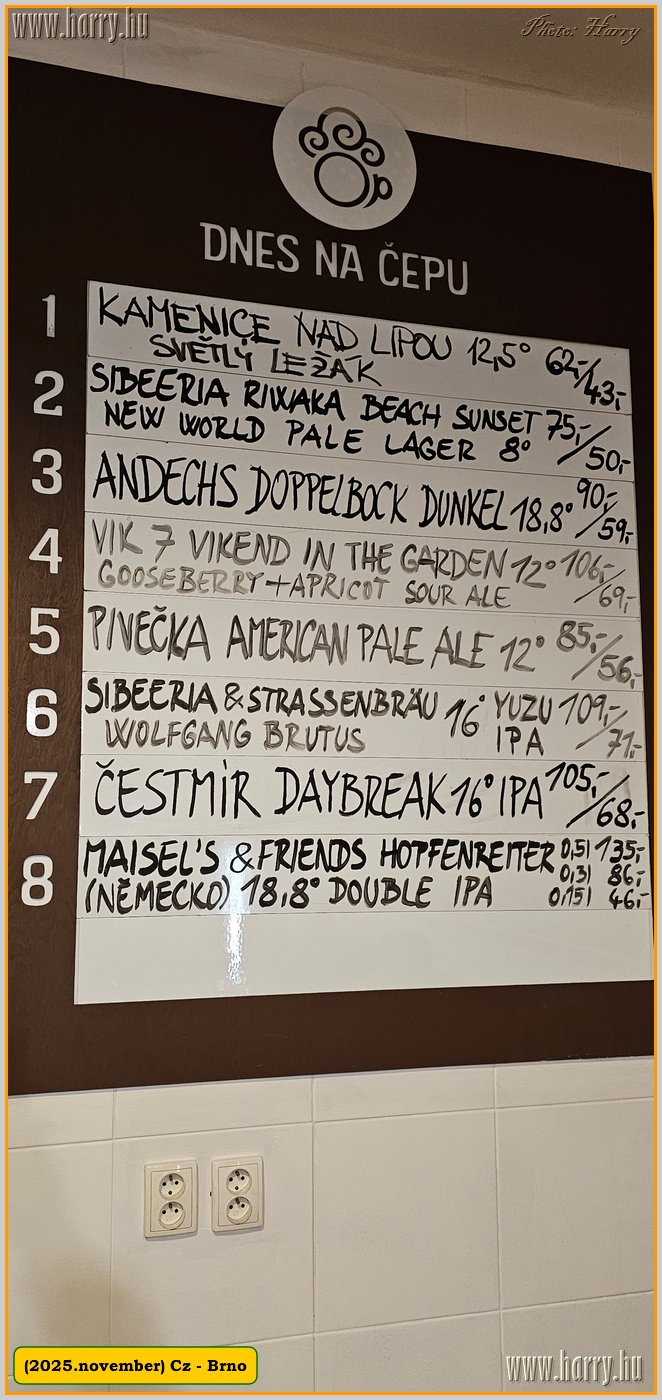 www.harry.hu
Photo: Harry
DNES NA ČEPU
1 KAMENICE NAD LIPOU 12,5° 62,-/43,-
SVĚTLÝ LEŽÁK
2 SIBEERIA RIWAKA BEACH SUNSET 75,-/50,-
NEW WORLD PALE LAGER 8°
3 ANDECHS DOPPELBOCK DUNKEL 18,8° 90,-/59,-
4 VIK 7 VIKEND IN THE GARDEN 12° 106,-/69,-
GOOSEBERRY + APRICOT SOUR ALE
5 PIVEČKA AMERICAN PALE ALE 12° 85,-/56,-
6 SIBEERIA & STRASSENBRÄU 16° YUZU 109,-/71,-
WOLFGANG BRUTUS IPA
7 ČESTMÍR DAYBREAK 16° IPA 105,-/68,-
8 MAISEL'S & FRIENDS HOPFENREITER 0,5l 135,-
0,3l 86,-
(NĚMECKO) 18,8° DOUBLE IPA 0,15l 46,-
(2025.november) Cz - Brno
www.harry.hu